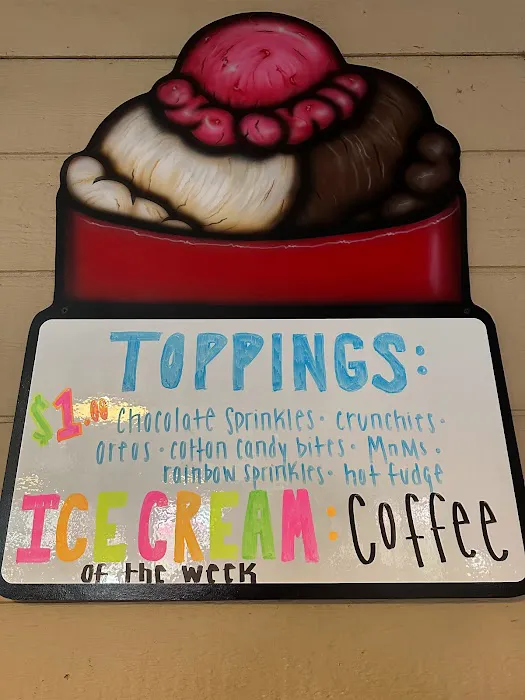 TOPPINGS:
$1.00 Chocolate Sprinkles · crunchies ·
oreos · cotton candy bites · MnMs ·
rainbow sprinkles · hot fudge
ICE CREAM: Coffee
of the week